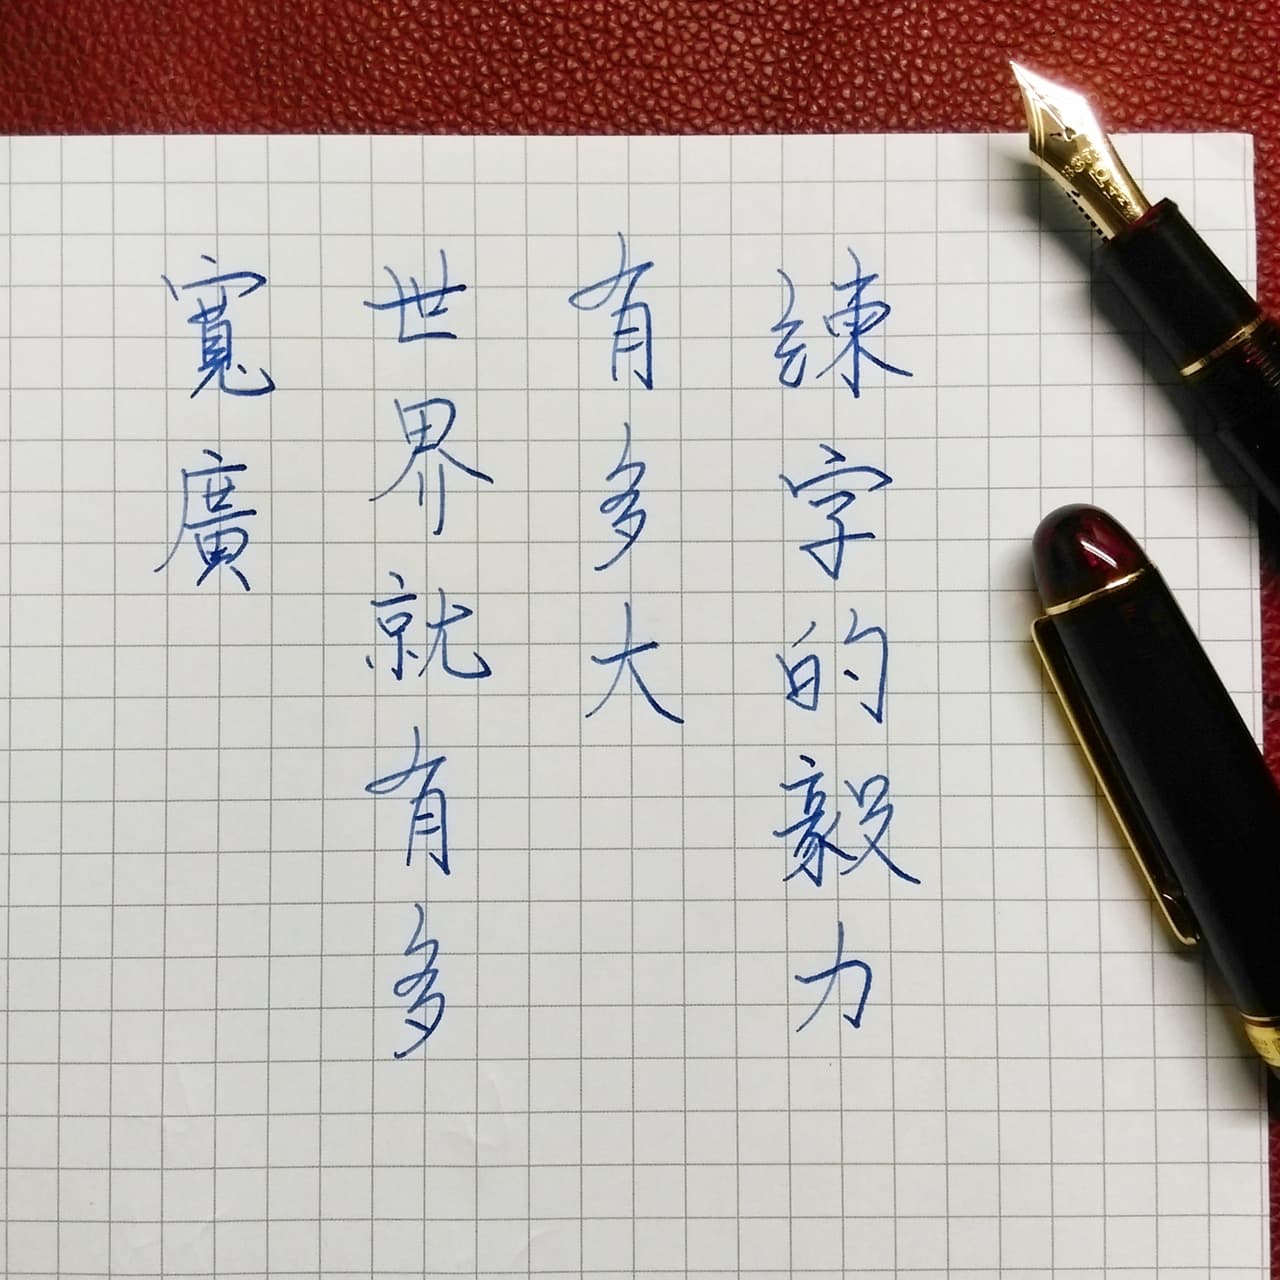 練字的毅力
有多大
世界就有多
寬廣